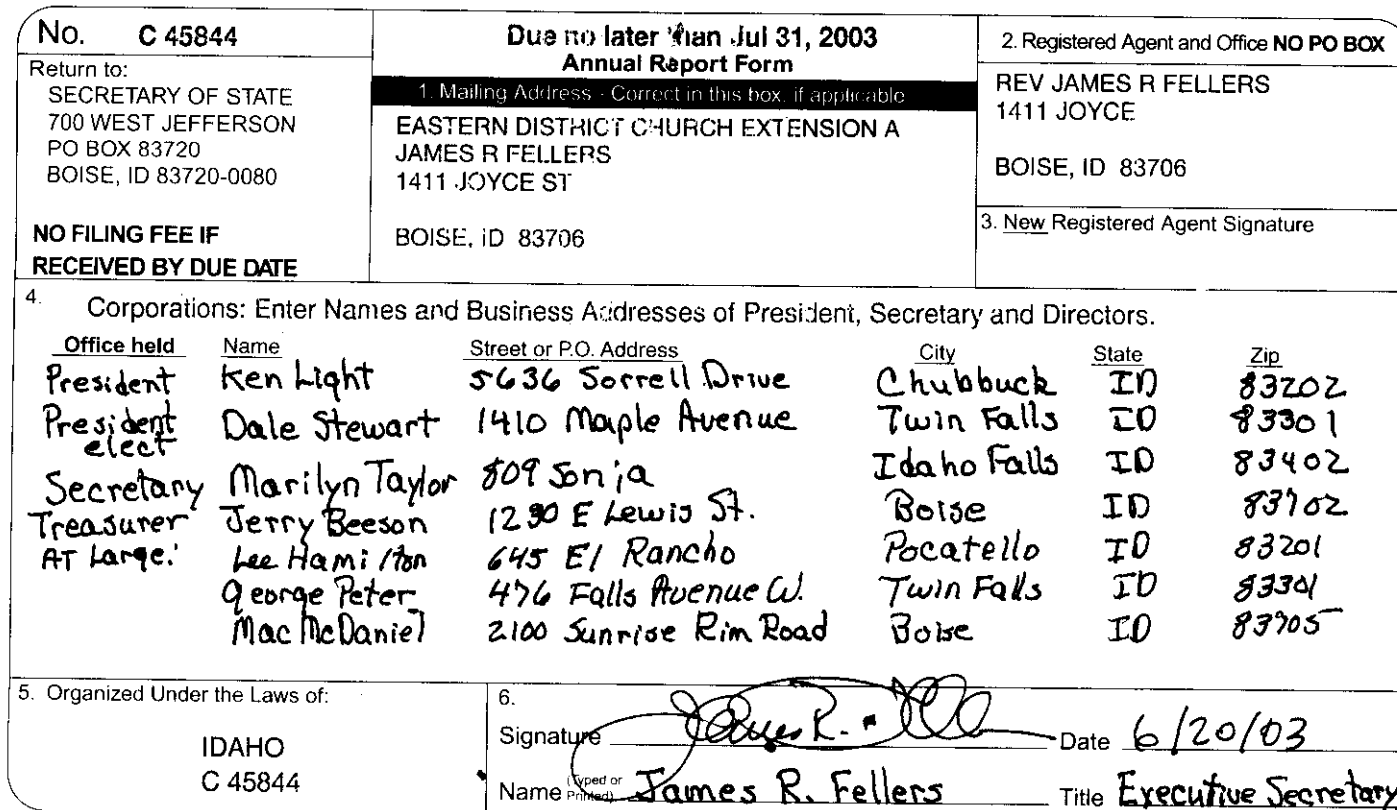 No. C 45844
Return to:
SECRETARY OF STATE
700 WEST JEFFERSON
PO BOX 83720
BOISE, ID 83720-0080
NO FILING FEE IF
RECEIVED BY DUE DATE
Due no later than Jul 31, 2003
Annual Report Form
1. Mailing Address - Correct in this box, if applicable
EASTERN DISTRICT CHURCH EXTENSION A
JAMES R FELLERS
1411 JOYCE ST
BOISE, ID 83706
2. Registered Agent and Office NO PO BOX
REV JAMES R FELLERS
1411 JOYCE
BOISE, ID 83706
3. New Registered Agent Signature
4. Corporations: Enter Names and Business Addresses of President, Secretary and Directors.
Office held Name Street or P.O. Address City State Zip
President Ken Light 5636 Sorrell Drive Chubbuck ID 83202
President elect Dale Stewart 1410 Maple Avenue Twin Falls ID 83301
Secretary Marilyn Taylor 809 Sonja Idaho Falls ID 83402
Treasurer Jerry Beeson 1230 E Lewis St. Boise ID 83702
AT Large: Lee Hamilton 645 El Rancho Pocatello ID 83201
George Peter 476 Falls Avenue W. Twin Falls ID 83301
Mac McDaniel 2100 Sunrise Rim Road Boise ID 83705
5. Organized Under the Laws of:
IDAHO
C 45844
6.
Signature James R. Date 6/20/03
Name (Typed or Printed) James R. Fellers Title Executive Secretary